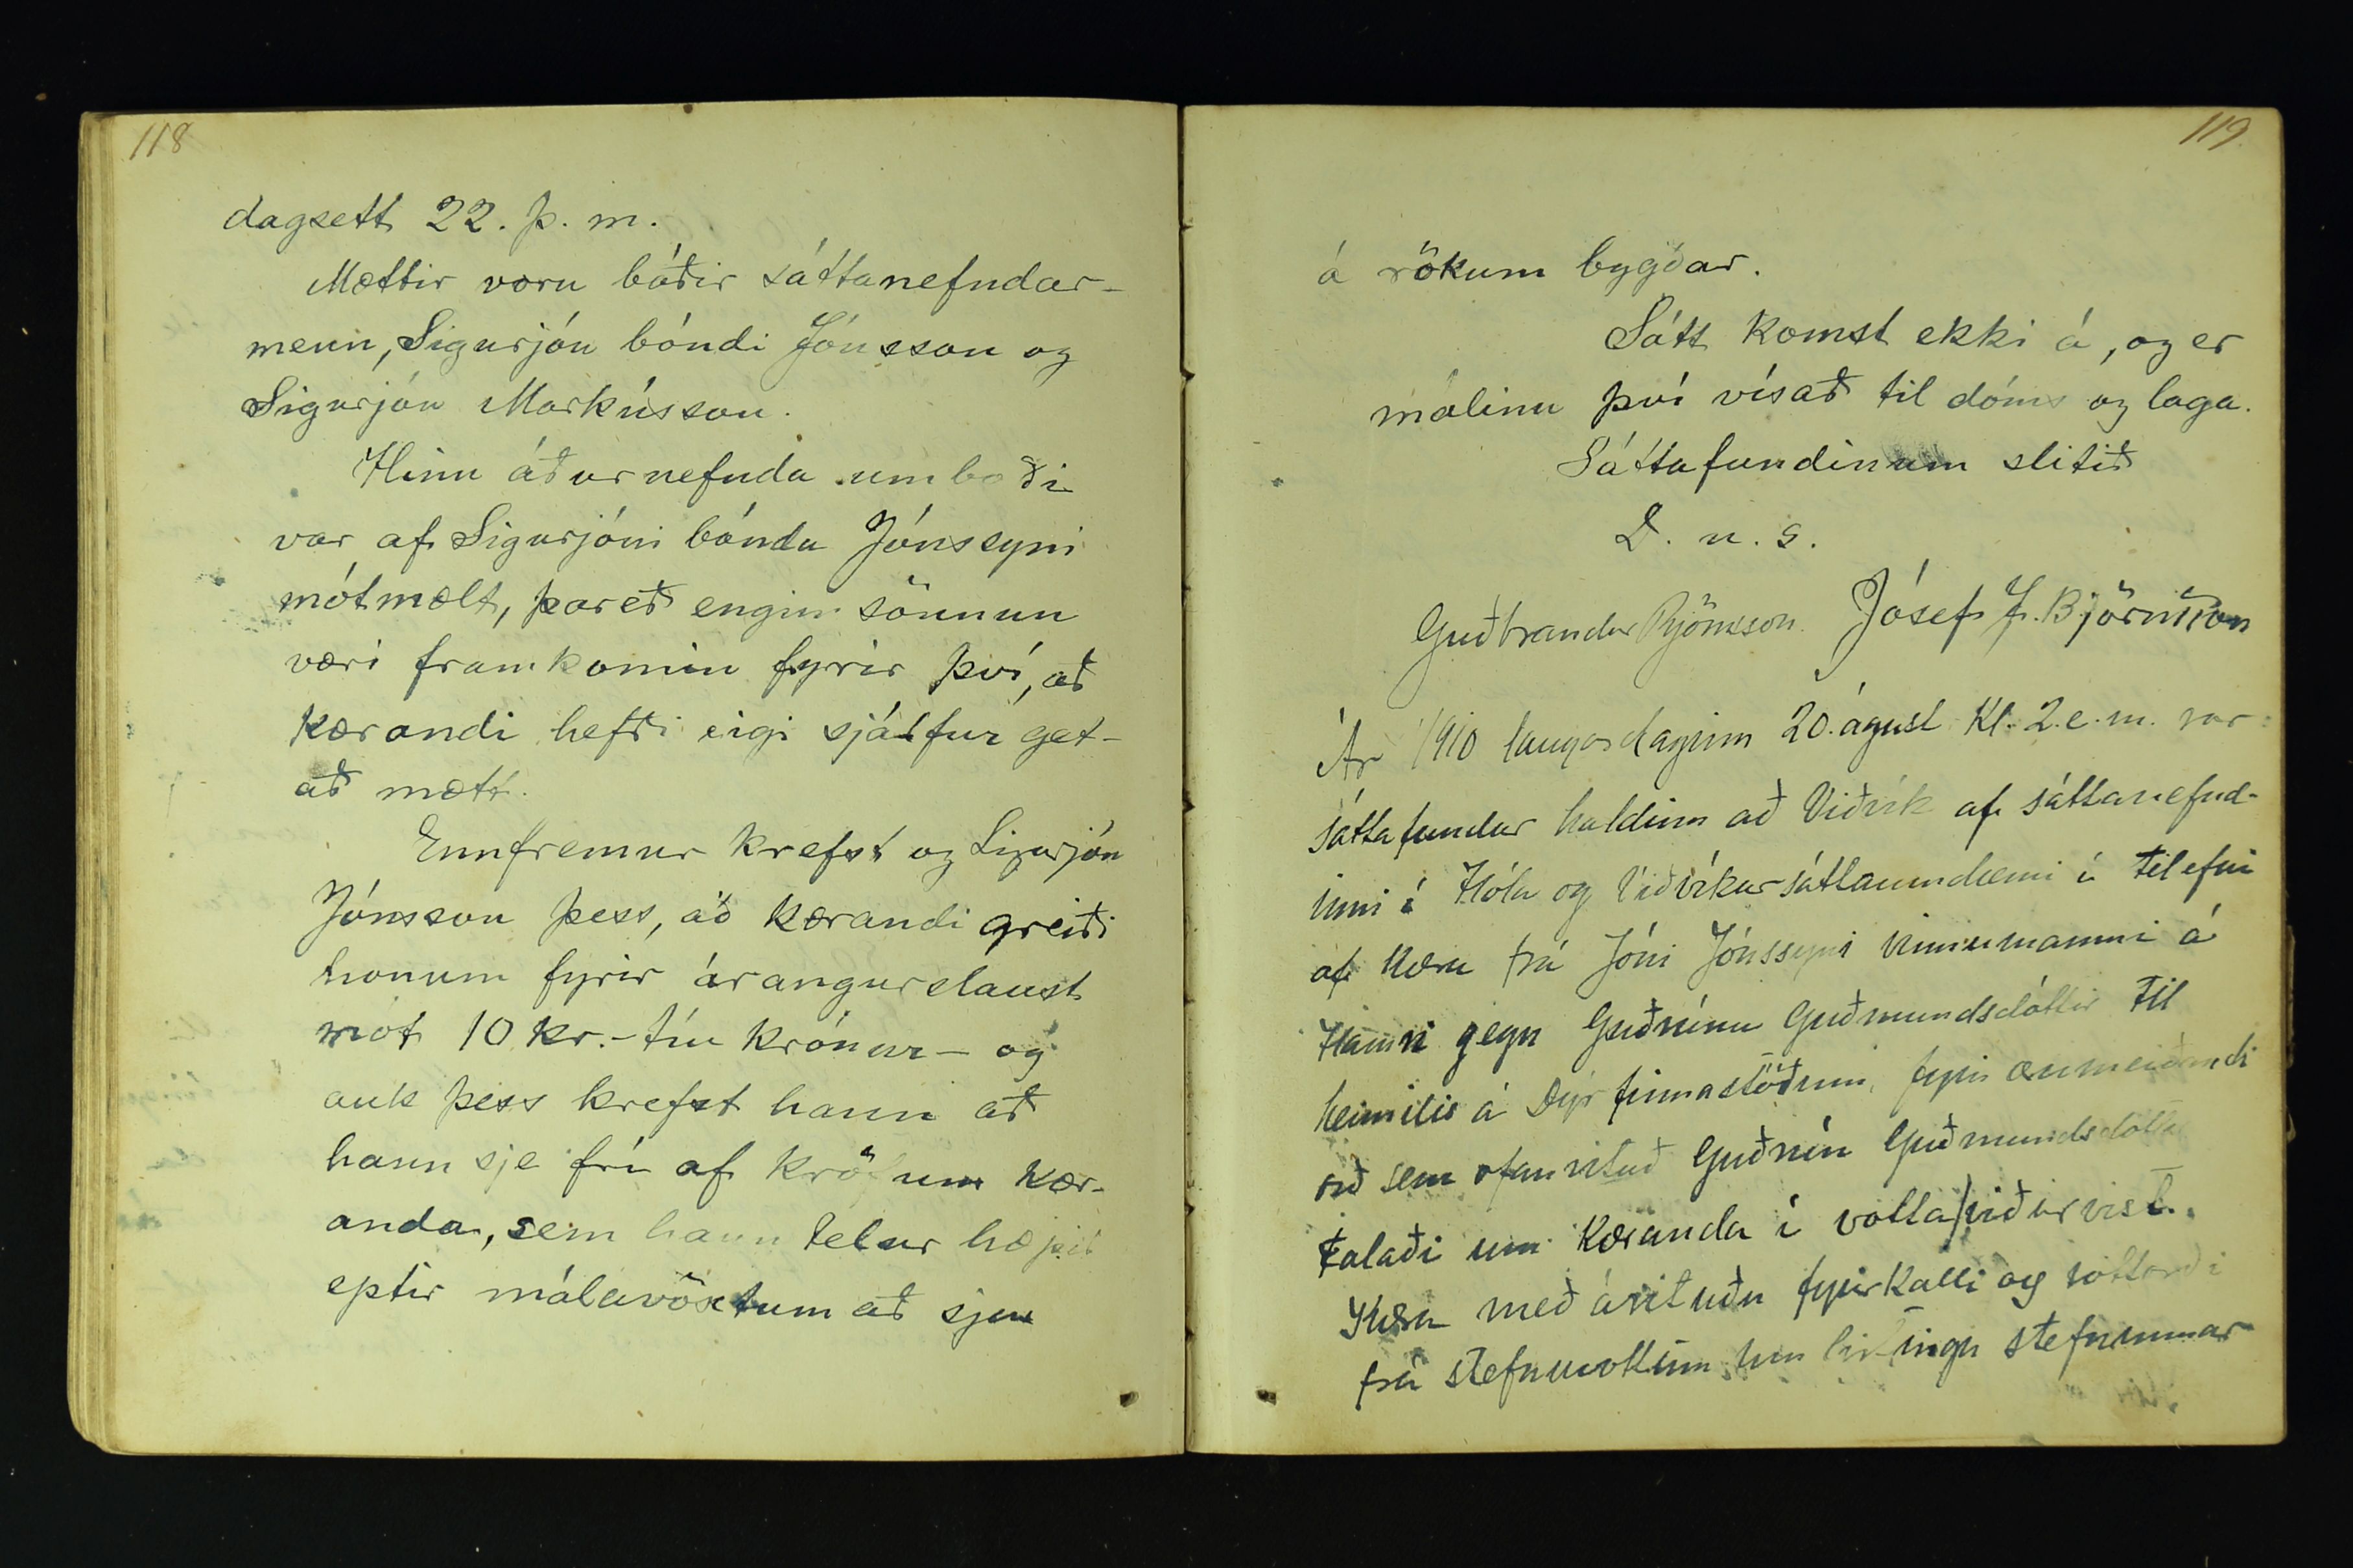 118
dagsett 22. þ. m.
Mættir voru báðir sáttanefndar-
menn, Sigurjón bóndi Jónsson og
Sigurjón Markússon.
Hinu áðurnefnda umboði
var af Sigurjóni bónda Jónssyni
mótmælt, þareð engin sönnun
væri framkomin fyrir því, að
kærandi hefði eigi sjálfur get-
að mætt.
Ennfremur krefst og Sigurjón
Jónsson þess, að kærandi greiði
honum fyrir árangurslaust
mót 10 kr. - tíu krónur - og
auk þess krefst hann að
hann sje frí af kröfum kær-
anda, sem hann telur hæpið
eptir málavöxtum að sjeu
119
á rökum bygðar.
Sátt komst ekki á, og er
málinu því vísað til dóms og laga.
Sáttafundinum slitið
D. u. s.
Guðbrandur Björnsson. Jósef J. Björnsson
Ár 1910 laugardaginn 20. ágúst kl. 2. e. m. var
sáttafundur haldinn að Viðvík af sáttanefnd-
inni í Hóla og Viðvíkursáttaumdæmi í tilefni
af kæru frá Jóni Jónssyni vinnumanni á
Hamri gegn Guðrúnu Guðmundsdóttir til
heimilis á Dýrfinnastöðum, fyrir ærumeiðandi
orð sem ofanrituð Guðrún Guðmundsdóttir
talaði um kæranda í votta viðurvist.
Kæra með árituðu fyrirkalli og vottorði
frá stefnuvottum um birtingu stefnunnar